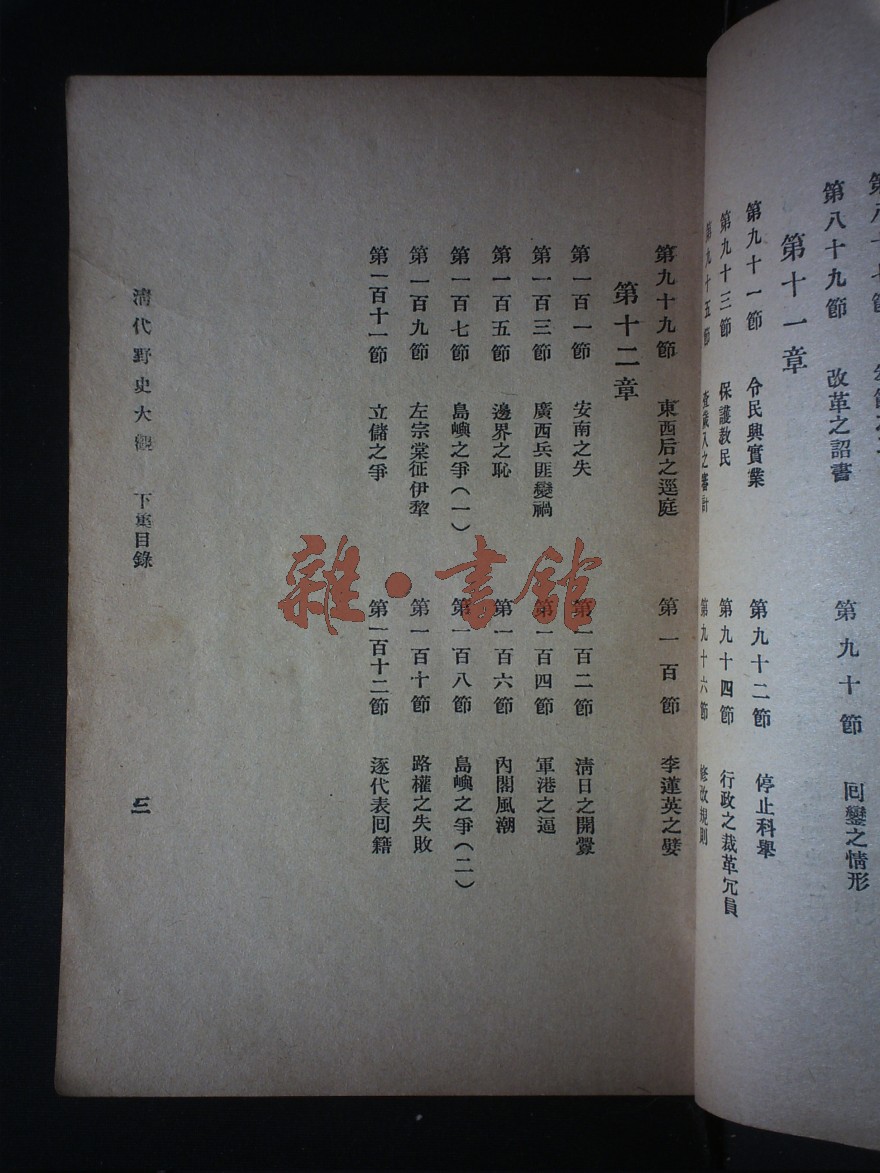 第八十九節　改革之詔書
第九十節　回鑾之情形
第十一章
第九十一節　令民興實業
第九十二節　停止科舉
第九十三節　保護教民
第九十四節　行政之裁革冗員
第九十五節　歲入之審計
第九十六節　修改規則
第九十九節　東西后之逕庭
第一百節　李蓮英之嬖
第十二章
第一百一節　安南之失
第一百二節　淸日之開釁
第一百三節　廣西兵匪變禍
第一百四節　軍港之逼
第一百五節　邊界之恥
第一百六節　內閣風潮
第一百七節　島嶼之爭(一)
第一百八節　島嶼之爭(二)
第一百九節　左宗棠征伊犂
第一百十節　路權之失敗
第一百十一節　立儲之爭
第一百十二節　逐代表回籍
淸代野史大觀　下集目錄
三
雜·書館